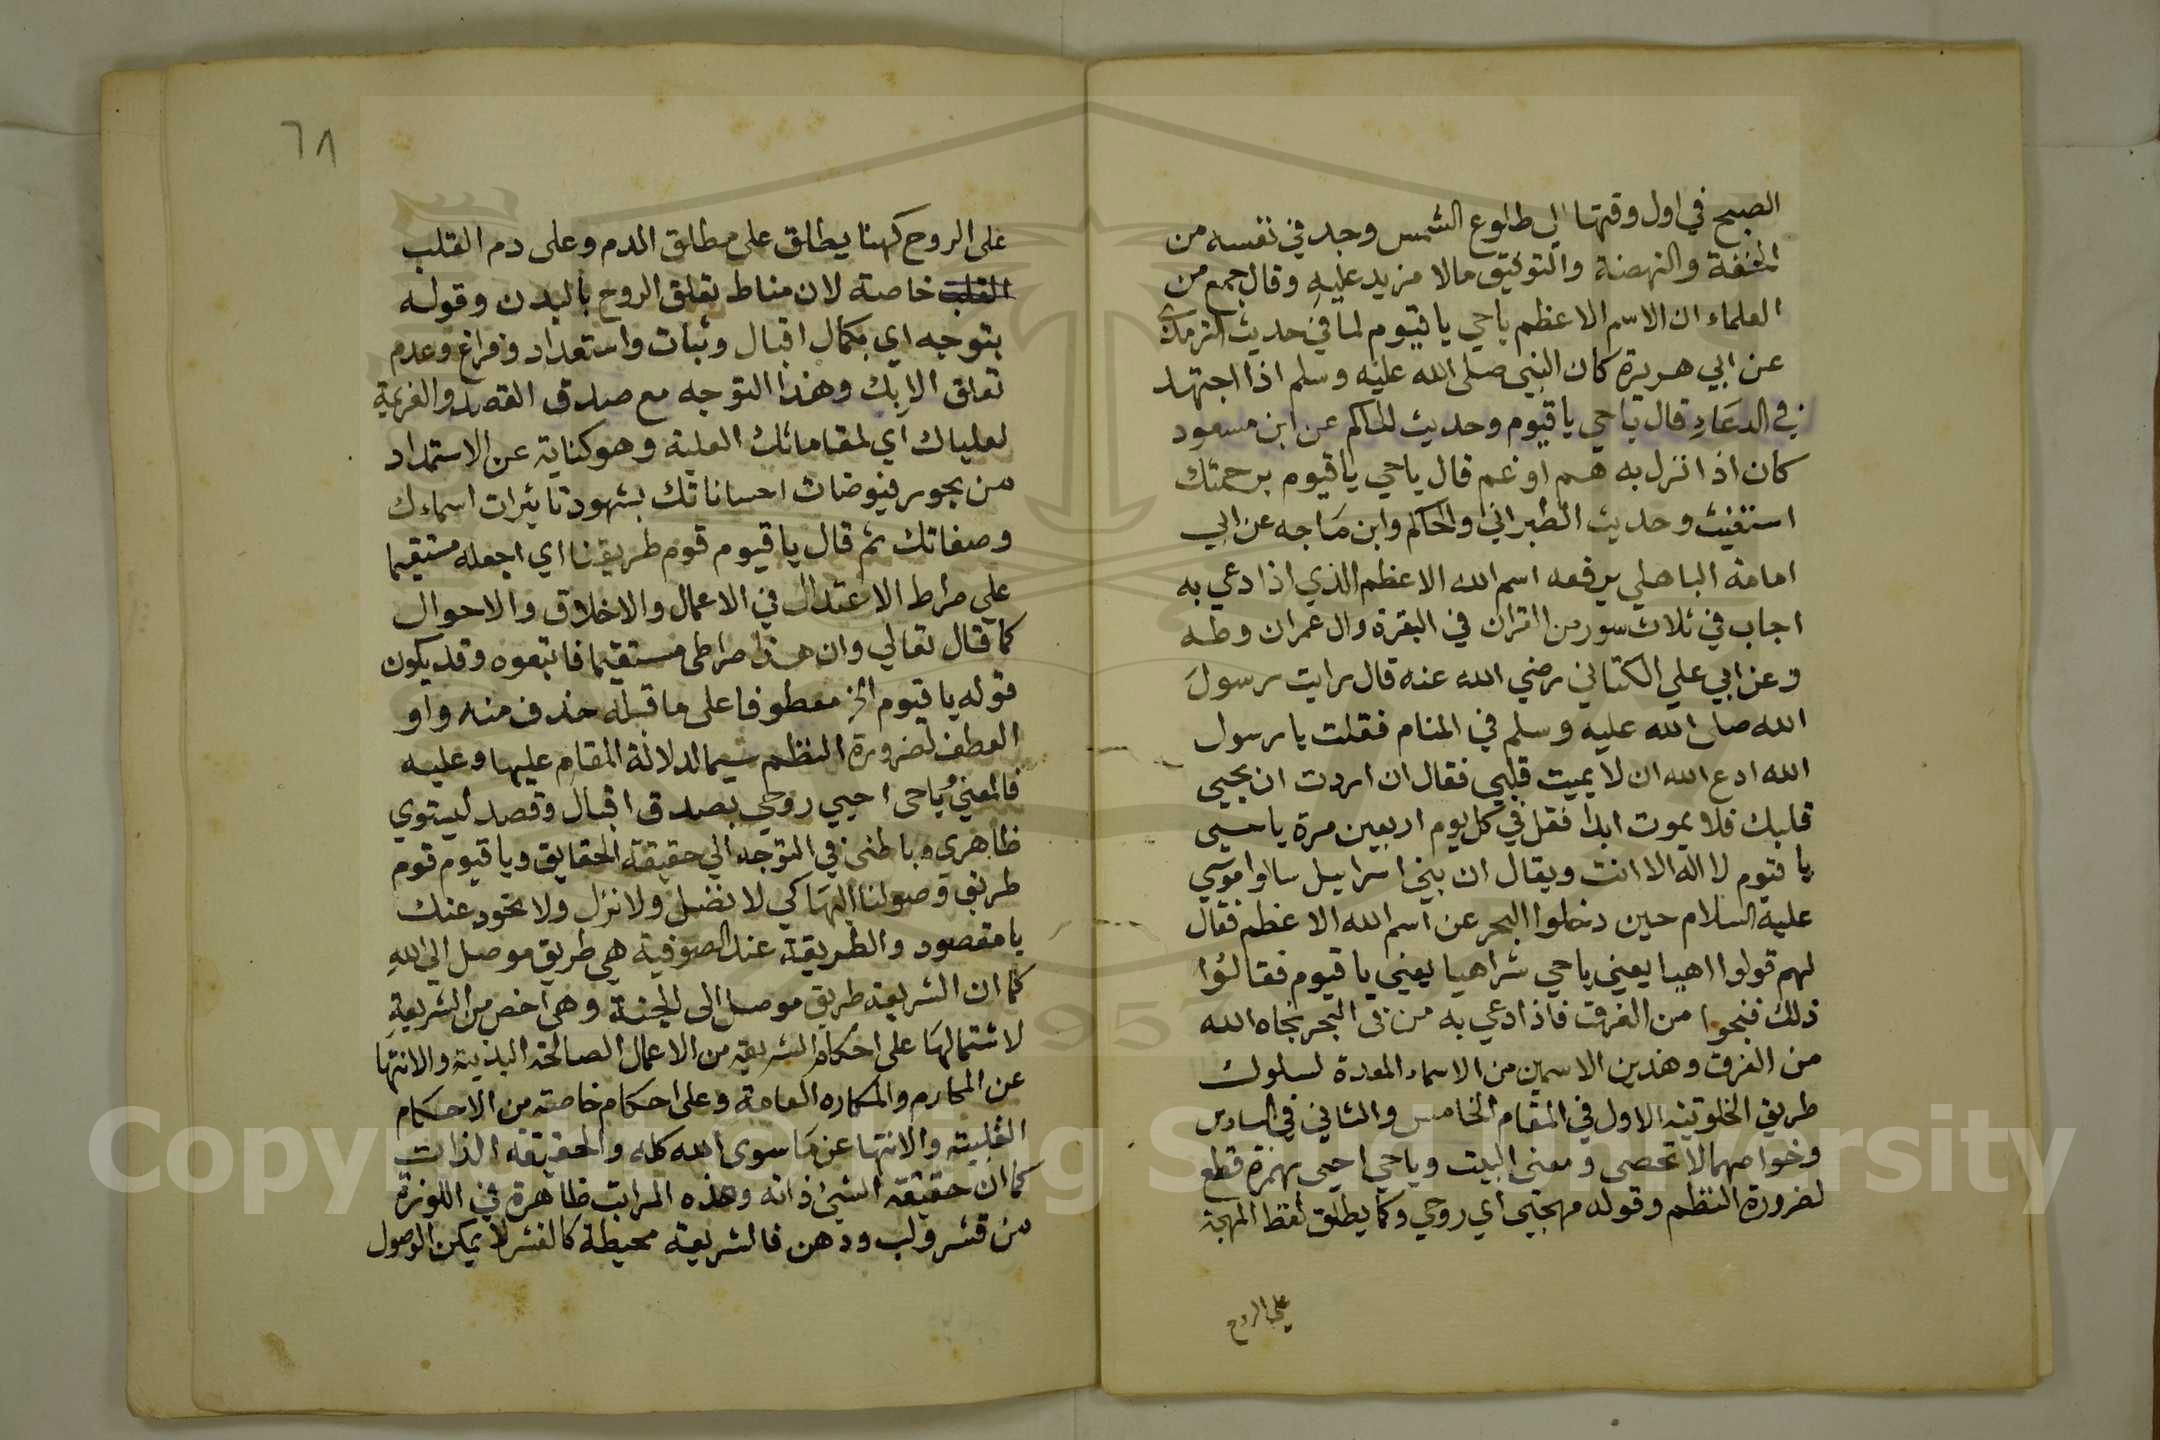 الصبح في اول وقتها الى طلوع الشمس وجد في نفسه من
الخفة والنهضة والتوفيق مالا مزيد عليه وقال جمع من
العلماء ان الاسم الاعظم ياحي ياقيوم لما في حديث الترمذي
عن ابي هريرة كان النبي صلى الله عليه وسلم اذا اجتهد
في الدعاء قال ياحي ياقيوم وحديث الحاكم عن ابن مسعود
كان اذا نزل به هم او غم قال ياحي ياقيوم برحمتك
استغيث وحديث الطبراني والحاكم وابن ماجه عن ابي
امامة الباهلي يرفعه اسم الله الاعظم الذي اذا دعي به
اجاب في ثلاث سور من القران في البقرة وال عمران وطه
وعن ابي علي الكتاني رضي الله عنه قال رايت رسول
الله صلى الله عليه وسلم في المنام فقلت يا رسول
الله ادع الله ان لا يميت قلبي فقال ان اردت ان يحيى
قلبك فلا يموت ابدا فقل في كل يوم اربعين مرة ياحي
يا قيوم لا اله الا انت ويقال ان بني اسرايل سالوا موسي
عليه السلام حين دخلوا البحر عن اسم الله الاعظم فقال
لهم قولوا اهيا يعني ياحي شراهيا يعني ياقيوم فقالوا
ذلك فنجوا من الغرق فاذا دعي به من في البحر نجاه الله
من الغرق وهذين الاسمين من الاسماء المعدة لسلوك
طريق الخلوتية الاول في المقام الخامس والثاني في السادس
وخواصهما لا تحصى ومعنى البيت وياحي احيي بهمزة قطع
لضرورة النظم وقوله مهجتي اي روحي وكما يطلق لفظ المهجة
على الروح
٦٨
على الروح كهنا يطلق على مطلق الدم وعلى دم القلب
القلب خاصة لان مناط تعلق الروح بالبدن وقوله
بتوجه اي بكمال اقبال وثبات واستعداد وفراغ وعدم
تعلق الا بك وهذا التوجه مع صدق القصد والعزيمة
لعلياك اي لمقاماتك العلية وهو كناية عن الاستمداد
من بحور فيوضات احساناتك بشهود تاثيرات اسماءك
وصفاتك ثم قال ياقيوم قوم طريقنا اي اجعله مستقيما
على صراط الاعتدال في الاعمال والاخلاق والاحوال
كما قال تعالي وان هذا صراطي مستقيما فاتبعوه وقد يكون
قوله ياقيوم الخ معطوفا على ما قبله حذف منه واو
العطف لضرورة النظم سيما لدلالة المقام عليها وعليه
فالمعنى ياحي احيي روحي بصدق اقبال وقصد ليستوي
ظاهري وباطني في التوجه الي حقيقة الحقايق وياقيوم قوم
طريق وصولنا الهنا كي لا نضل ولا نزل ولا عنك
يا مقصود والطريقة عند الصوفية هي طريق موصل الي الله
كما ان الشريعة طريق موصل الى الجنة وهي اخص من الشريعة
لاشتمالها على احكام الشريعة من الاعمال الصالحة البدنية والانتها
عن المحارم والمكاره العامة وعلى احكام خاصة من الاحكام
القلبية والانتها عن ما سوى الله كله والحقيقة الذات
كما ان حقيقة الشيئ ذاته وهذه المراتب ظاهرة في اللوزة
من قشر ولب ودهن فالشريعة محيطة كالقشر لا يمكن الوصول